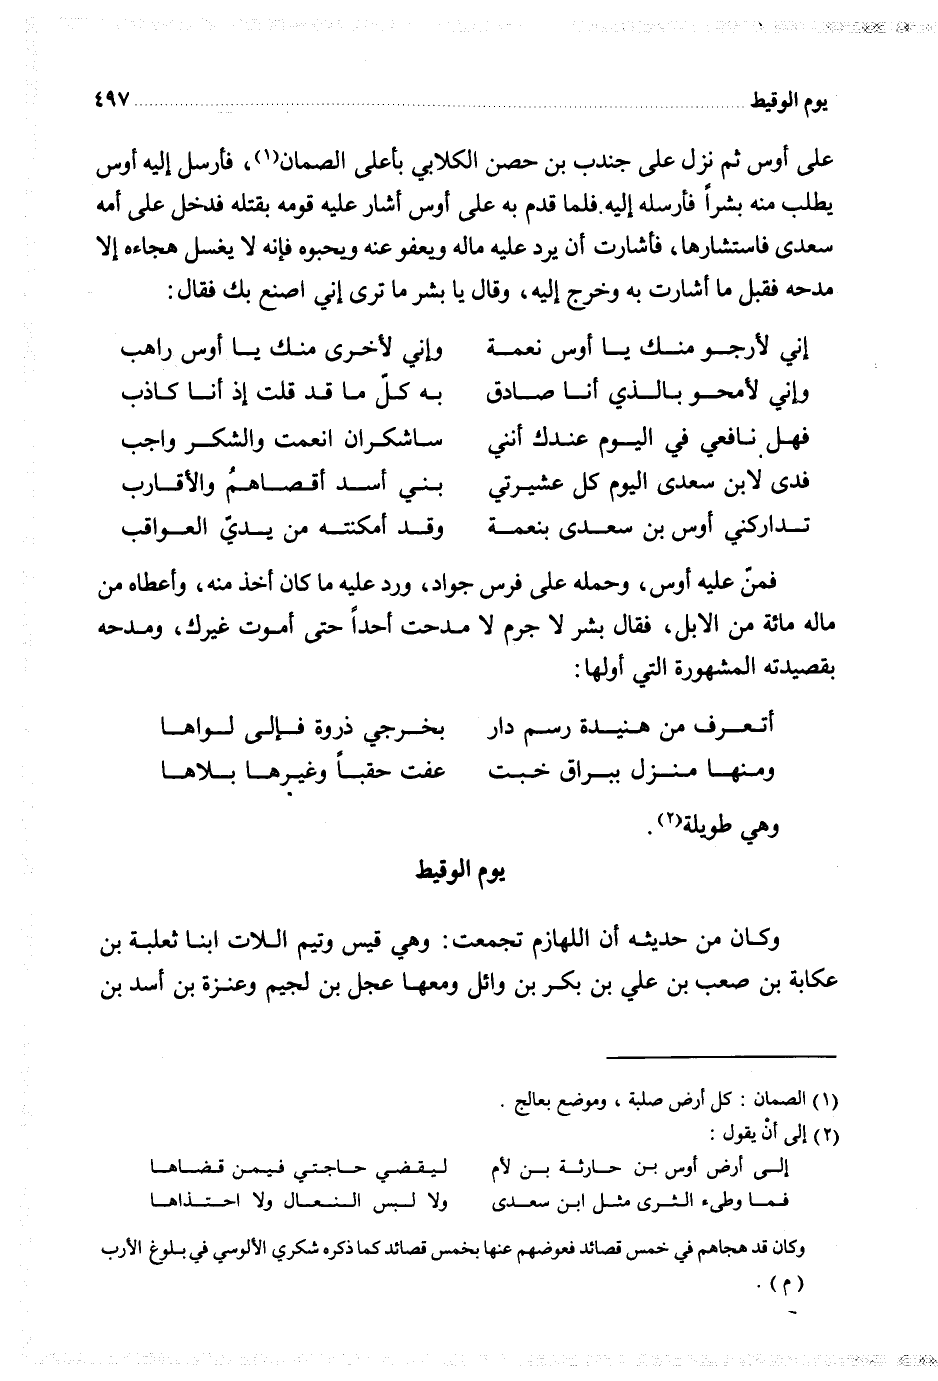 يوم الوقيط ........ ٤٩٧
على أوس ثم نزل على جندب بن حصن الكلابي بأعلى الصمان(١)، فأرسل إليه أوس
يطلب منه بشراً فأرسله إليه. فلما قدم به على أوس أشار عليه قومه بقتله فدخل على أمه
سعدى فاستشارها، فأشارت أن يرد عليه ماله ويعفو عنه ويحبوه فإنه لا يغسل هجاءه إلا
مدحه فقبل ما أشارت به وخرج إليه، وقال يا بشر ما ترى إني اصنع بك فقال:
إني لأرجــو منــك يــا أوس نعمــة وإني لأخرى منك يــا أوس راهب
وإني لأمحــو بـالــذي أنــا صــادق به كلّ ما قد قلت إذ أنـا كـاذب
فهـل نـافعي في اليـوم عنـدك أنني سـاشكـران انعمت والشكـر واجب
فدى لابن سعدى اليوم كل عشيرتي بنـي أسـد أقصـاهـمُ والأقـارب
تـداركني أوس بن سعـدى بنعمـة وقـد أمكنتـه من يـديّ العـواقب
فمنّ عليه أوس، وحمله على فرس جواد، ورد عليه ما كان أخذ منه، وأعطاه من
ماله مائة من الابل، فقال بشر لا جرم لا مدحت أحداً حتى أموت غيرك، ومدحه
بقصيدته المشهورة التي أولها:
أتعـرف من هنيـدة رسـم دار بخـرجي ذروة فـإلى لـواهـا
ومنهـا منـزل ببـراق خبـت عفت حقبـاً وغيرهـا بـلاهـا
وهي طويلة(٢).
يوم الوقيط
وكـان من حديثه أن اللهازم تجمعت: وهي قيس وتيم الـلات ابنـا ثعلبة بن
عكابة بن صعب بن علي بن بكـر بن وائل ومعهـا عجل بن لجيم وعنـزة بن أسد بن
(١) الصمان : كل أرض صلبة ، وموضع بعالج .
(٢) إلى أنْ يقول :
إلـى أرض أوس بـن حـارثـة بـن لأم ليقضي حـاجتي فيمـن قضـاهـا
فمـا وطىء الثـرى مثـل ابـن سعدى ولا لبس النعـال ولا احتـذاهـا
وكان قد هجاهم في خمس قصائد فعوضهم عنها بخمس قصائد كما ذكره شكري الألوسي في بلوغ الأرب
(م) .